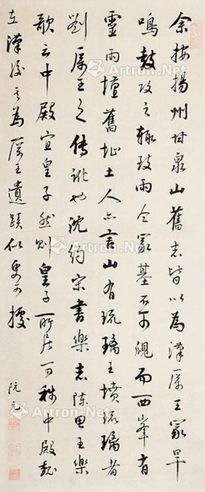 余按揚州甘泉山舊志皆以為漢厲王冢旱
鳴鼓攻之輒致雨今冢基不可覩而西峯有
靈雨壇舊址土人亦言山有琉璃王墳琉璃者
劉厲王之傳訛也沈約宋書樂志陳思王樂
歌云中殿宜皇子然則皇子所居可稱中殿
在漢後之為厲王遺蹟似更可據
阮元
Artron.Net